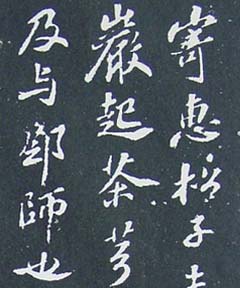 寄惠梧子
巖起茶芎
及与鄧師也